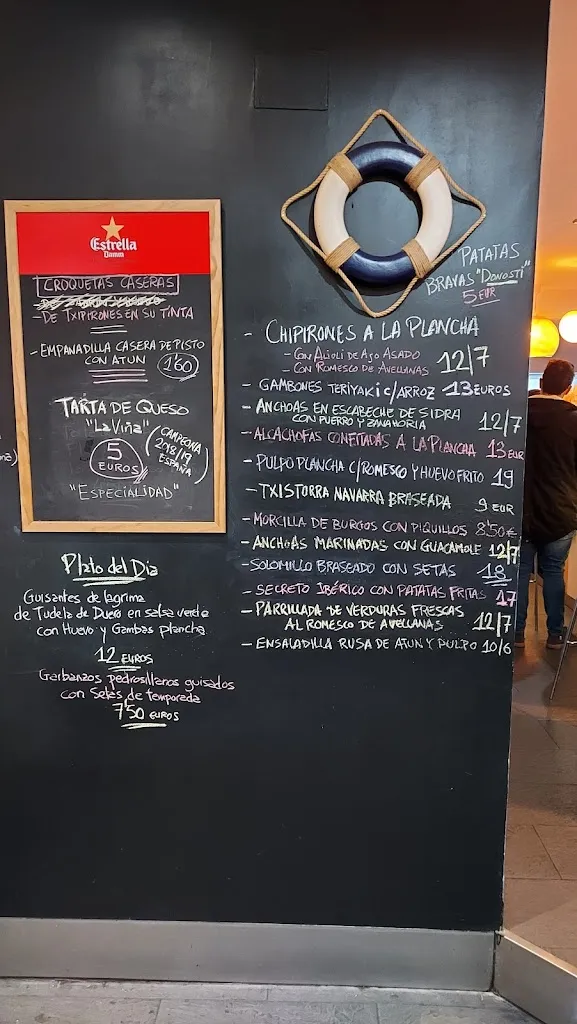 Estrella
Damm
CROQUETAS CASERAS
-DE TXIPIRONES EN SU TINTA
-EMPANADILLA CASERA DE PISTO
CON ATUN 1'60
TARTA DE QUESO
"LA Viña"
5
EUROS
(CAMPEONA
2018/19
ESPAÑA)
"ESPECIALIDAD"
Plato del Dia
Guisantes de lagrima
de Tudela de Duero en salsa verde
con Huevo y Gambas plancha
12 EUROS
Garbanzos pedrosillanos guisados
con Setas de temporada
7'50 EUROS
PATATAS
BRAVAS "DONOSTI"
5 EUR
- CHIPIRONES A LA PLANCHA
- CON ALIOLI DE AJO ASADO
- CON ROMESCO DE AVELLANAS 12/7
- GAMBONES TERIYAKI C/ARROZ 13 EUROS
- ANCHOAS EN ESCABECHE DE SIDRA
CON PUERRO Y ZANAHORIA 12/7
- ALCACHOFAS CONFITADAS A LA PLANCHA 13 EUR
- PULPO PLANCHA C/ROMESCO Y HUEVO FRITO 19
- TXISTORRA NAVARRA BRASEADA 9 EUR
- MORCILLA DE BURGOS CON PIQUILLOS 8'50€
- ANCHOAS MARINADAS CON GUACAMOLE 12/7
- SOLOMILLO BRASEADO CON SETAS 18
- SECRETO IBÉRICO CON PATATAS FRITAS 17
- PARRILLADA DE VERDURAS FRESCAS
AL ROMESCO DE AVELLANAS 12/7
- ENSALADILLA RUSA DE ATUN Y PULPO 10/6